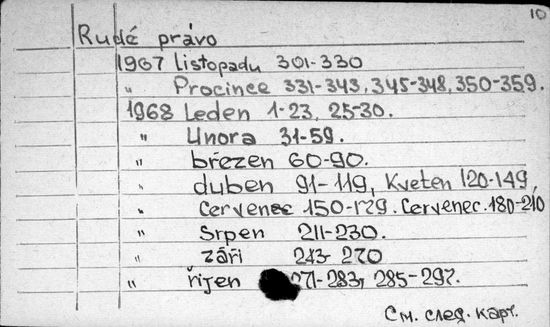 10
Rudé právo
1967 listopadu 301-330
" Procinec 331-343, 345-348, 350-359.
1968 Leden 1-23, 25-30.
" Unora 31-59.
" březen 60-90.
" duben 91-119, Kveten 120-149,
" červenec 150-179. Červenec. 180-210
" Srpen 211-230.
" září 243-270
" říjen 271-283, 285-297.
См. след. карт.